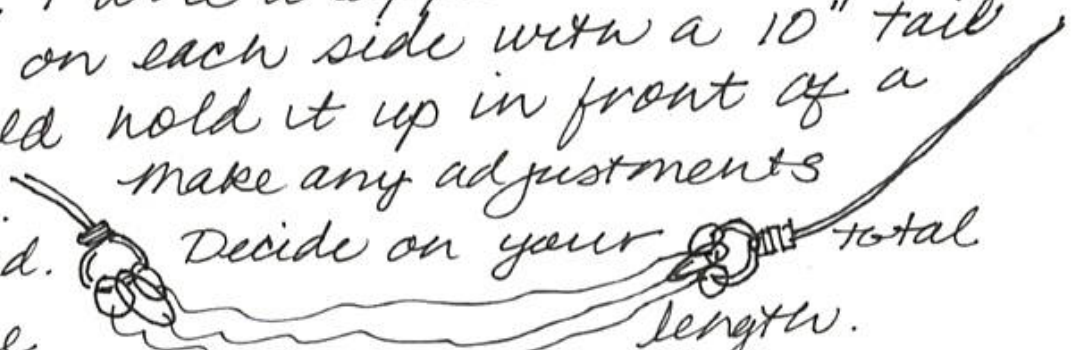 on each side with a 10" tail
ed hold it up in front of a
make any adjustments
d. Decide on your total
length.